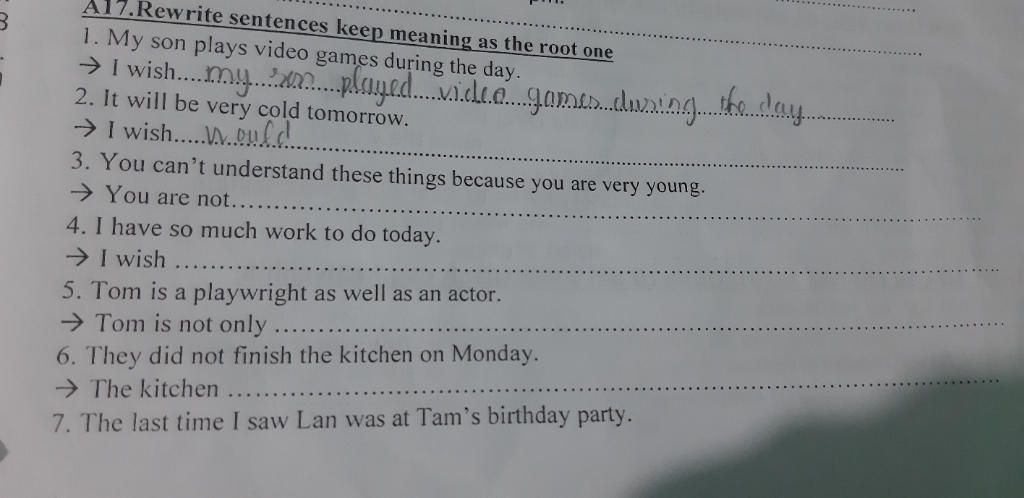 A17.Rewrite sentences keep meaning as the root one
1. My son plays video games during the day.
→ I wish....my son played video games during the day
2. It will be very cold tomorrow.
→ I wish.....would
3. You can't understand these things because you are very young.
→ You are not
4. I have so much work to do today.
→ I wish
5. Tom is a playwright as well as an actor.
→ Tom is not only
6. They did not finish the kitchen on Monday.
→ The kitchen
7. The last time I saw Lan was at Tam's birthday party.